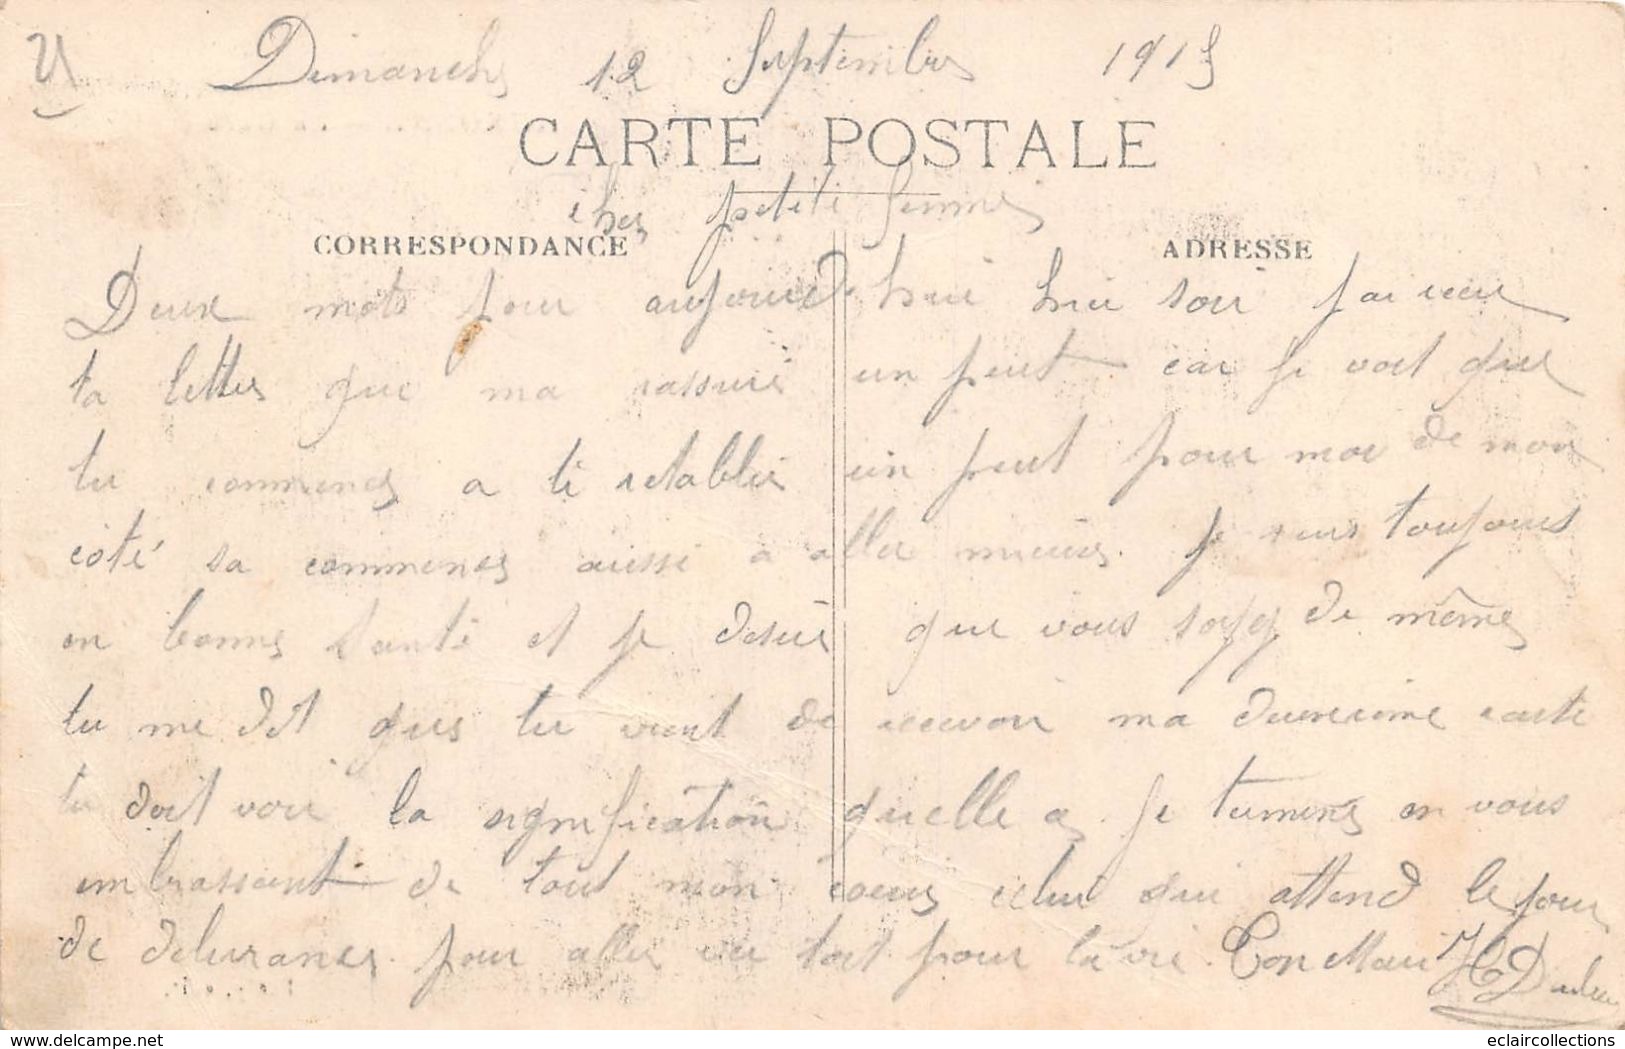 Dimanche 12 Septembre 1915
CARTE POSTALE
cher petite femme
CORRESPONDANCE ADRESSE
Deux mots pour aujourd'hui hier soir j'ai reçu
ta lettre que ma rassuré un peut car je voit que
tu commence a te retablir un peut pour moi de mon
côté sa commence aussi a aller mieux. je suis toujours
en bonne santé et je desire que vous soyez de même
tu me dit que tu vient de recevoir ma deuxieme carte
tu doit voir la signification quelle a. je termine en vous
embrassant de tout mon coeur celui qui attend le jour
de delivrance pour aller vers toit pour la vie. Ton Mari H
www.delcampe.net eclaircollections